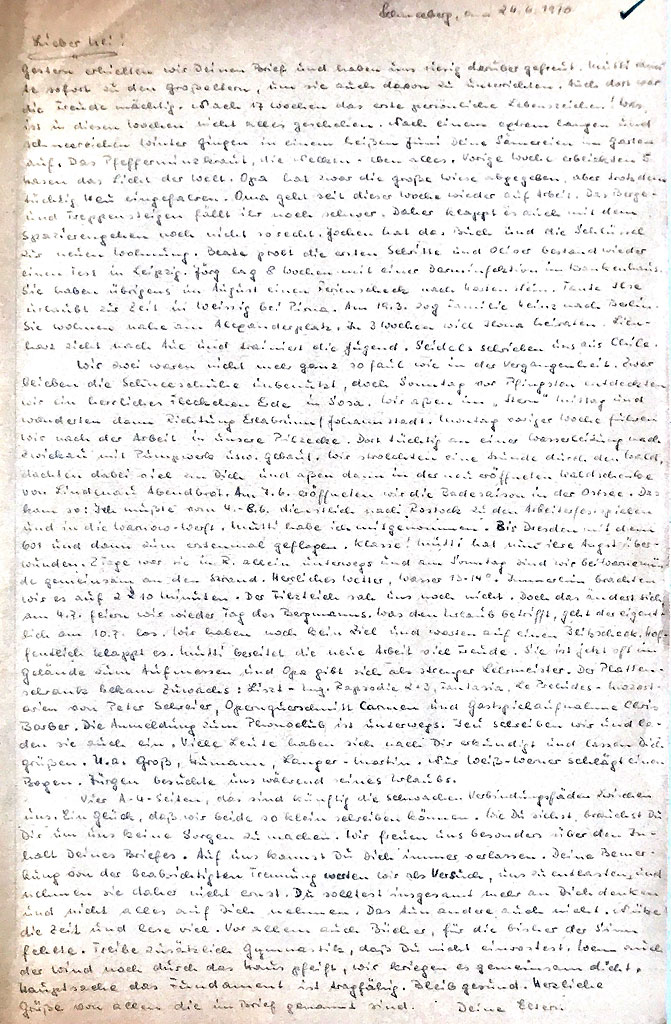 Schneeberg, am 24.6.1970
Lieber Uli!
Gestern erhielten wir Deinen Brief und haben uns riesig darüber gefreut. Mutti
te sofort zu den Großeltern, um sie auch davon zu unterrichten. Auch dort war
die Freude mächtig. Nach 17 Wochen das erste persönliche Lebenszeichen! Was
ist in diesen Wochen nicht alles geschehen. Nach einem extrem langen und
schneereichen Winter gingen in einem heißen Juni Deine Sämereien im Garten
auf. Das Pfefferminzkraut, die Nelken - eben alles. Vorige Woche erblickten 5
Hasen das Licht der Welt. Opa hat zwar die große Wiese abgegeben, aber trotzdem
tüchtig Heu eingefahren. Oma geht seit dieser Woche wieder auf Arbeit. Das Berge-
und Treppensteigen fällt ihr noch schwer. Daher klappt es auch mit dem
Spazierengehen noch nicht so recht. Jochen hat das Buch und die Schlüssel
zur neuen Wohnung. Beate probt die ersten Schritte und Oliver bestand wieder
einen Test in Leipzig. Jörg lag 8 Wochen mit einer Darminfektion im Krankenhaus.
Sie haben übrigens im August einen Ferienscheck nach Tante Ilse
urlaubt zur Zeit in Weissig bei Pirna. Am 19.3. zog Familie Heinz nach Berlin.
Sie wohnen nahe am Alexanderplatz. In 3 Wochen will Ilona heiraten. Lien-
hard zieht nach Aue und trainiert die Jugend. Seidels schrieben uns aus Chile.
Wir zwei waren nicht mehr ganz so faul wie in der Vergangenheit. Zwar
blieben die Schneeschuhe unbenützt, doch Sonntag vor Pfingsten entdeckten
wir ein herrliches Fleckchen Erde in Sosa. Wir aßen im „Stern" Mittag und
wanderten dann Richtung Erlabrunn/Johannstadt. Montag voriger Woche fuhren
wir nach der Arbeit in unsere Pilzecke. Dort tüchtig an einer Wasserleitung nach
Zwickau mit Pumpwerk usw. gebaut. Wir strolchten eine Stunde durch den Wald,
dachten dabei viel an Dich und aßen dann in der neu eröffneten Waldschenke
von Lindenau Abendbrot. Am 7.6. eröffneten wir die Badesaison in der Ostsee. Das
kam so: Ich mußte vom 4.-8.6. dienstlich nach Rostock zu den Arbeiterfestspielen
und in die Warnow-Werft. Mutti habe ich mitgenommen. Bis Dresden mit dem
601 und dann zum erstenmal geflogen. Klasse! Mutti hat nun ihre Angst über-
wunden. 2 Tage war sie in R. allein unterwegs und am Sonntag sind wir bei Warnemün-
de gemeinsam an den Strand. Herrliches Wetter, Wasser 13-14°. Immerhin brachten
wir es auf 2 x 10 Minuten. Der Filzteich sah uns noch nicht. Doch das ändert sich,
am 4.7. feiern wir wieder Tag des Bergmanns. Was den Urlaub betrifft, geht der eigent-
lich am 10.7. los. Wir haben noch kein Ziel und warten auf einen Blitzscheck. Hof-
fentlich klappt es. Mutti bereitet die neue Arbeit viel Freude. Sie ist jetzt oft im
Gelände zum Aufmessen und Opa gibt sich als strenger Lehrmeister. Der Platten-
schrank bekam Zuwachs: Liszt - Ung. Rapsodie 2+3, Fantasia, Le Preludes - Mozart-
arien von Peter Schreier, Opernquerschnitt Carmen und Gastspielaufnahme Chris
Barber. Die Anmeldung zum Phonoclub ist unterwegs. Jeu schreiben wir und la-
den sie auch ein. Viele Leute haben sich nach Dir erkundigt und lassen Dich
grüßen. U.a. Groß, Humann, Langer-Martin. Nur Weiß-Werner schlägt einen
Bogen. Jürgen besuchte uns während seines Urlaubs.
Vier A-4-Seiten, das sind künftig die schwachen Verbindungsfäden zwischen
uns. Ein Glück, daß wir beide so klein schreiben können. Wie Du siehst, brauchst Du
Dir um uns keine Sorgen zu machen. Wir freuen uns besonders über den In-
halt Deines Briefes. Auf uns kannst Du Dich immer verlassen. Deine Bemer-
kung von der beabsichtigten Trennung werten wir als Versuch, uns zu entlasten, und
nehmen sie daher nicht ernst. Du solltest insgesamt mehr an Dich denken
und nicht alles auf Dich nehmen. Das tun andere auch nicht. Nütze
die Zeit und lese viel. Vor allem auch Bücher, für die bisher der Sinn
fehlte. Treibe zusätzlich Gymnastik, daß Du nicht einrostest. Wenn auch
der Wind noch durch das Haus pfeift, wir kriegen es gemeinsam dicht.
Hauptsache das Fundament ist tragfähig. Bleib gesund. Herzliche
Grüße von allen die im Brief genannt sind. Deine Eltern.